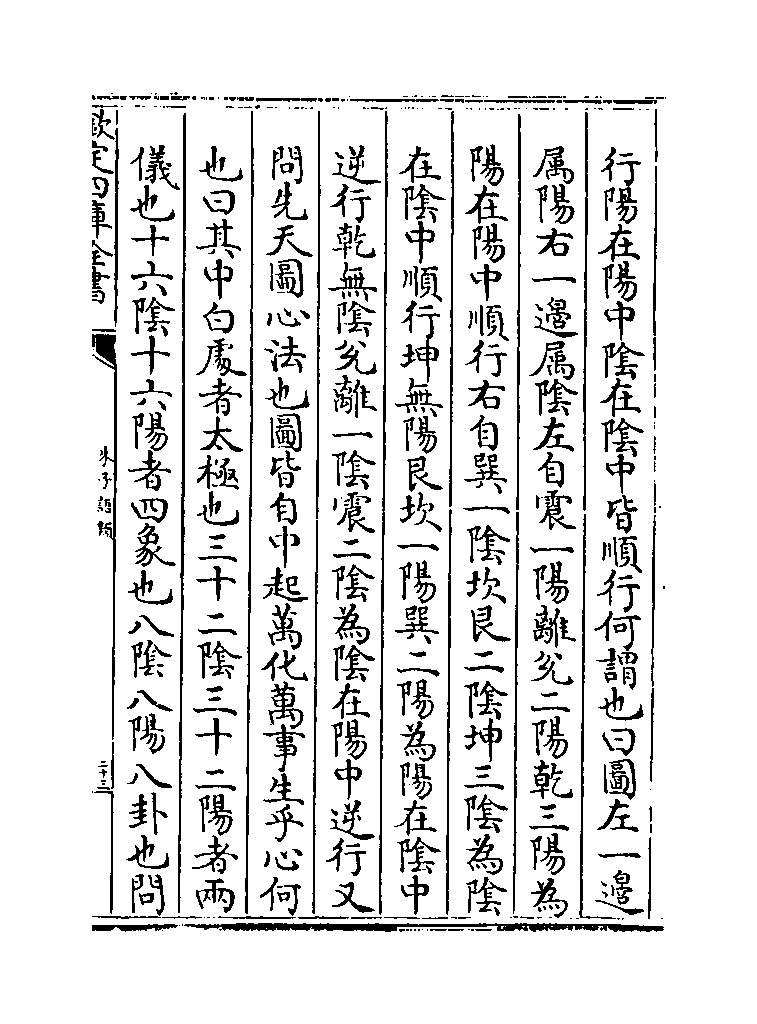 行陽在陽中陰在陰中皆順行何謂也曰圖左一邉
属陽右一邉属陰左自震一陽離兊二陽乾三陽為
陽在陽中順行右自巽一陰坎艮二陰坤三陰為陰
在陰中順行坤無陽艮坎一陽巽二陽為陽在陰中
逆行乾無陰兊離一陰震二陰為陰在陽中逆行又
問先天圖心法也圖皆自中起萬化萬事生乎心何
也曰其中白處者太極也三十二陰三十二陽者兩
儀也十六陰十六陽者四象也八陰八陽八卦也問
欽定四庫全書
朱子語類
二十三